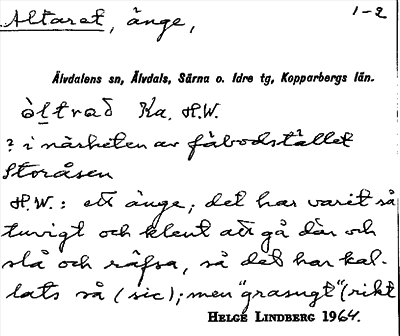 Altaret, änge,
1-2
Älvdalens sn, Älvdals, Särna o. Idre tg, Kopparbergs län.
òltrað Ka. H.W.
? i närheten av fäbodstället
Storåsen
H.W.: ett änge; det har varit så
tuvigt och klent att gå där och
slå och räfsa, så det har kal-
lats så (sic); men "grasugt" (rikt
HELGE LINDBERG 1964.